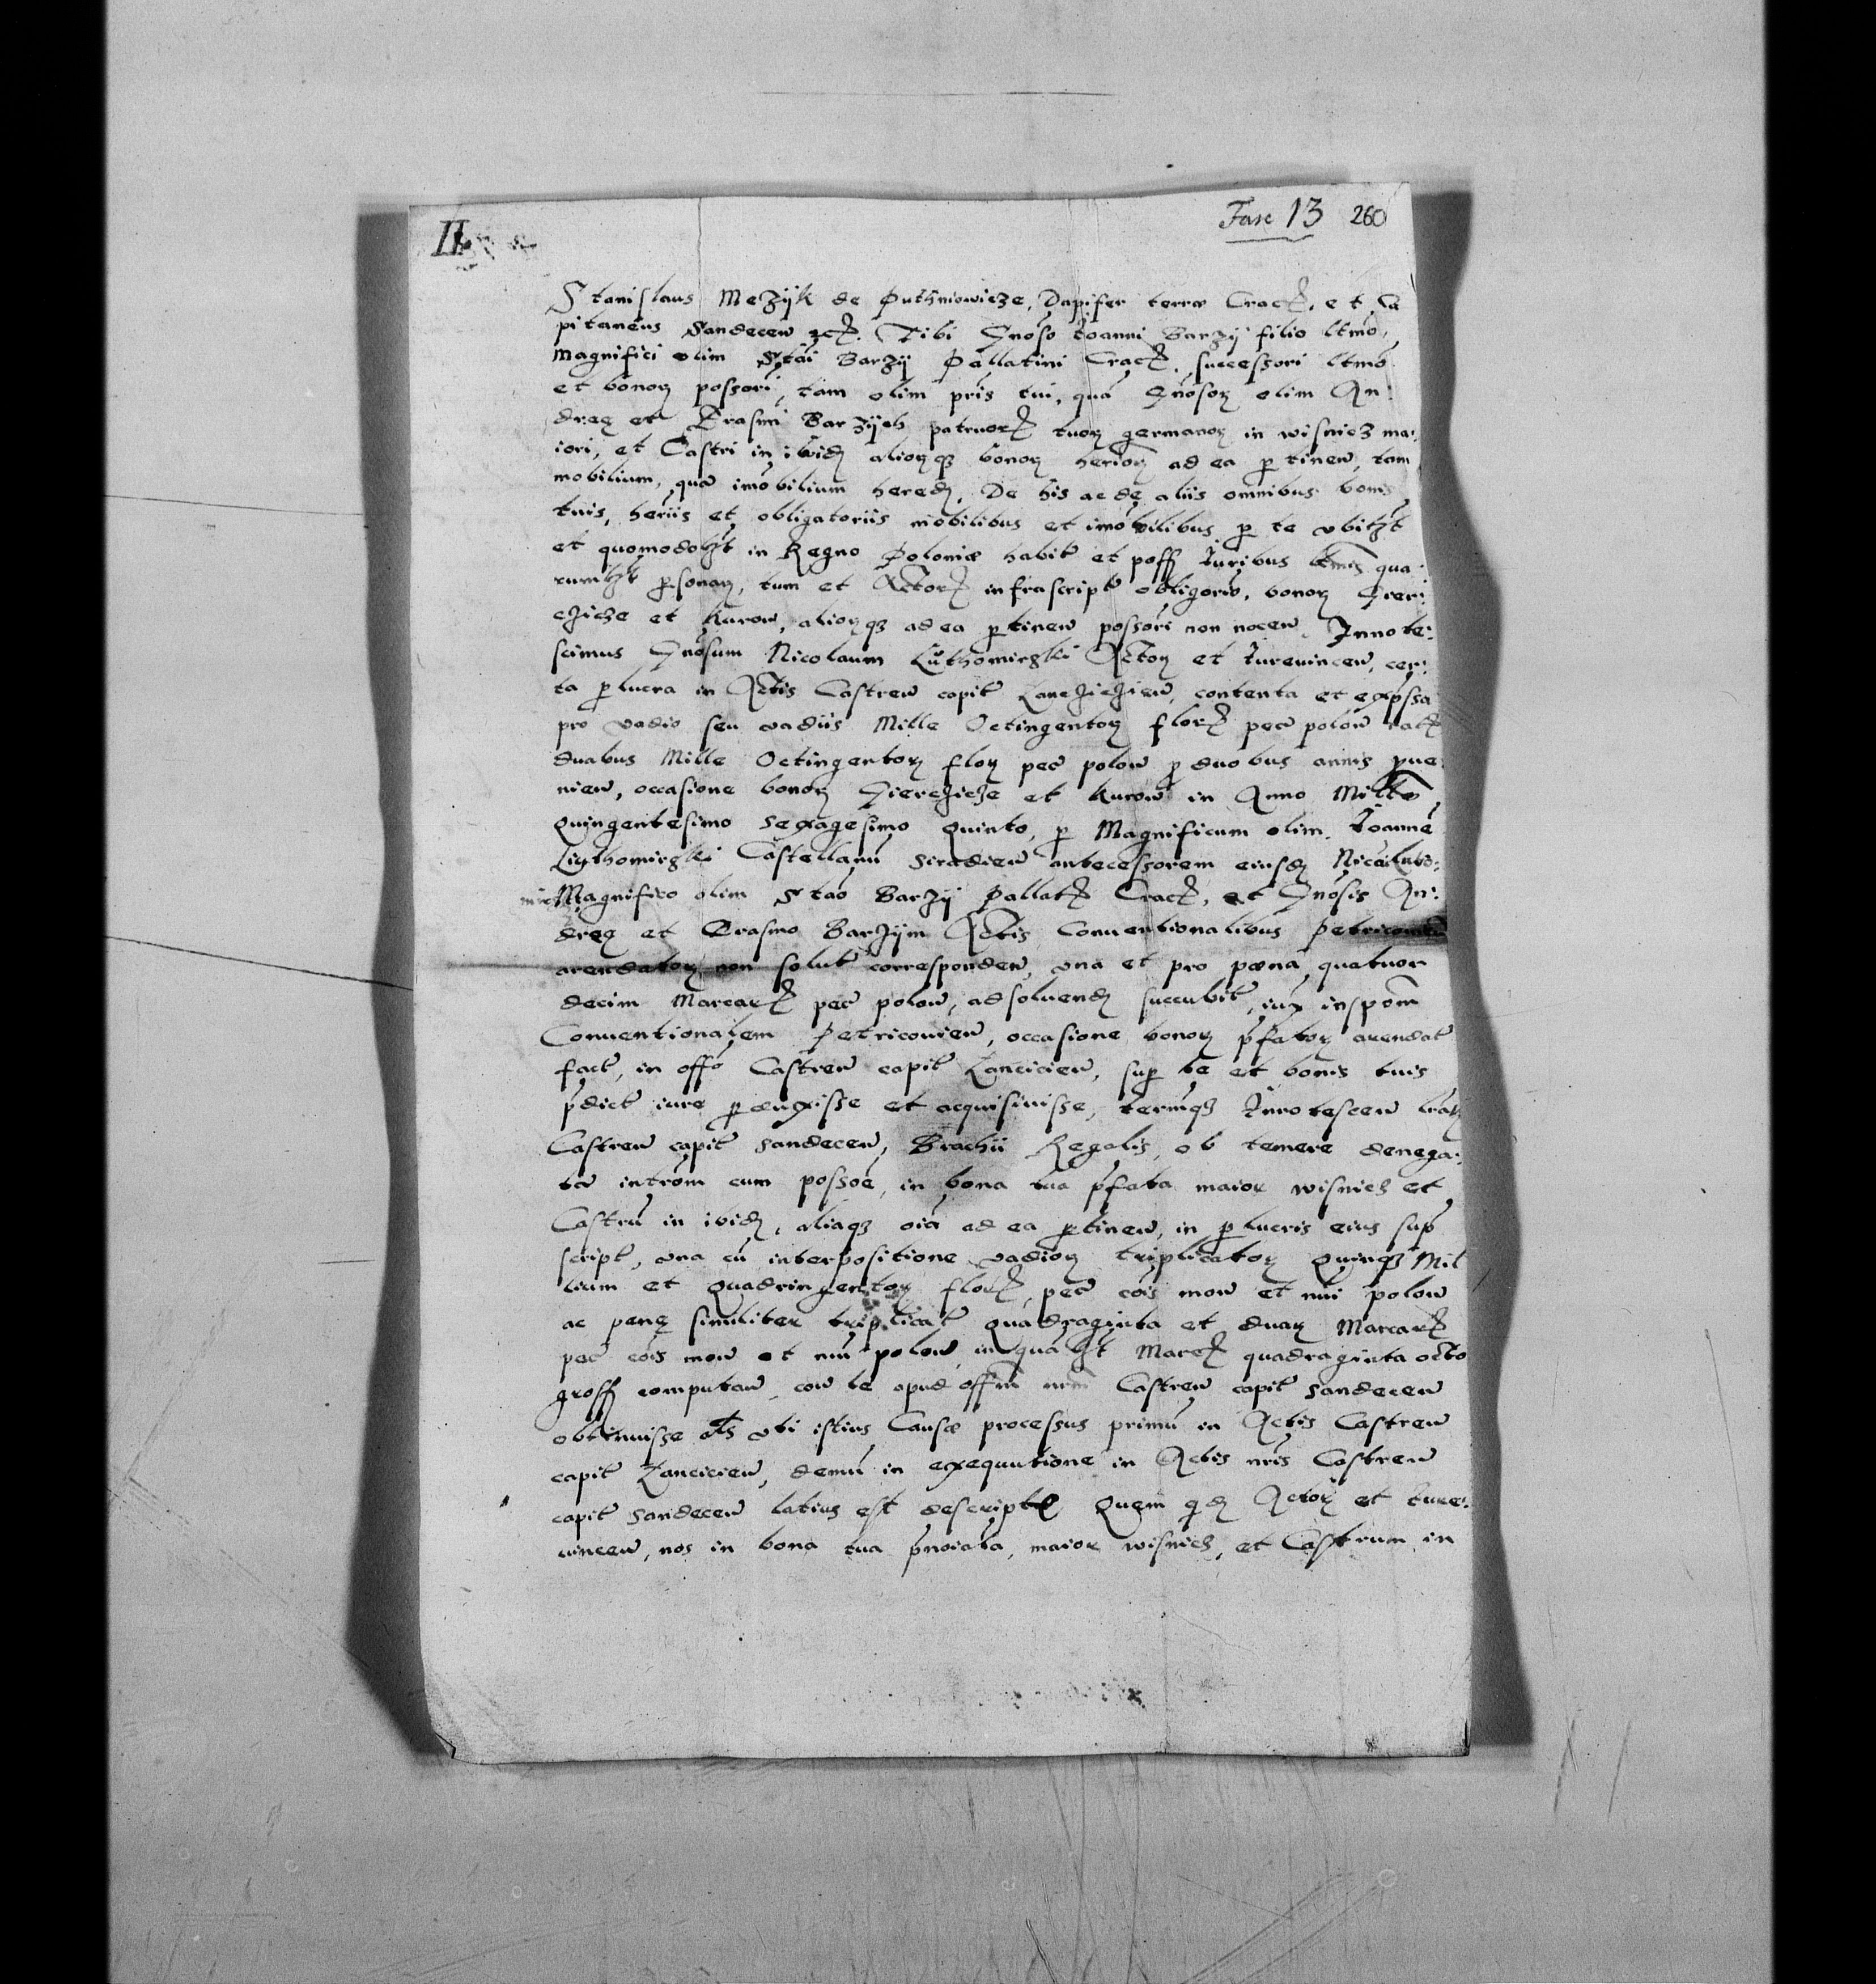 II
Fasc 13 260
Stanislaus Mezyk de Puthniowicze, Dapifer terræ Crac, et Ca
pitaneus Sandecen etc. Tibi Gnoso Ioanni Barzÿ filio ltmo,
Magnifici olim Stai Barzÿ Pallatini Crac, successori ltmo
et bonor possori, tam olim pris tui, qua Gnosor olim An:
dreę et Erasmi Barzÿch patruor tuor germanor in wisnicz ma:
iori, et Castri in ibid aliorq bonor herior ad ea ptinen, tam
mobilium, qua imobilium hered. De his ac de aliis omnibus bonis
tuis, heriis et obligatoriis mobilibus et imobilibus p te ubilzt
et quomodolzt in Regno Poloniæ habit et poss Iuribus ltmis qua:
rumlzt psonar, tum et Actor infrascript obligoris, bonor Gier:
czicze et Kurow, aliorq ad ea ptinen possori non nocen. Innote:
scimus Gnosum Nicolaum Luthomirski Actor et Iurevincen, cer:
ta plucra in Actis Castren capit Lancziczien, contenta et expssa
pro vadio seu vadiis Mille Octingentor flor pec polon rat
duabus Mille Octingentor flor pec polon p duobus annis pue:
nien, occasione bonor Gierczicze et Kurow in Anno Millo
Quingentesimo Sexagesimo Quinto, p Magnificum olim Ioanne
Luthomirski Castellanu Siradien antecessorem eiusd Nicolai:
Magnifico olim Stao Barzÿ Pallat Crac, et Gnosis An:
dreę et Erasmo Barzÿm Actis Conventionalibus Petricovien
arendator non solut corresponden, una et pro pœna quatuor
decim Marcar pec polon, ad solvend succubit, iux inspom
Conventionalem Petricovien, occasione bonor pfator arendat
fact, in offo Castren capit Lancicien, sup te et bonis tuis
pdict iure pduxisse et acquisivisse, termq Innotescen lrar
Castren capit Sandecen, Brachii Regalis, ob temere denega:
ta introm cum possoe, in bona tua pfata maior wisnicz et
Castru in ibid, aliaq oia ad ea ptinen, in plucris eius sup
script, una cu interpositione vadior triplicator Quinq Mil
lium et Quadringentor flor, pec cois mon et nui polon
ac penę similiter triplicat Quadraginta et duar Marcar
pec cois mon et nui polon, in qualzt Marc quadraginta octo
gross computan, con te apud offm nrm Castren capit Sandecen
obtinuisse als ubi istius Causæ processus primu in Actis Castren
capit Lancicien, demu in exequutione in Actis nris Castren
capit Sandecen latius est descript Quem qd Actor et Iure:
vincen, nos in bona tua pnoiata, maior wisnicz, et Castrum in